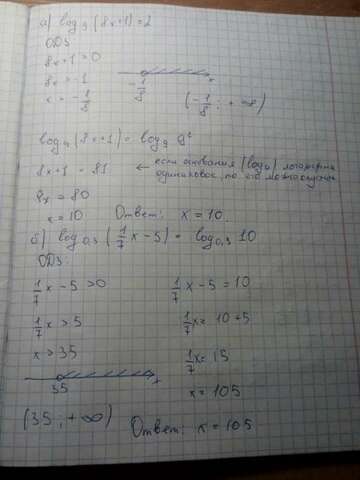 а) log₉(8x+1)=2
ОДЗ
8x+1>0
8x>-1
x=-1/8
-1/8
x
(-1/8; +∞)
log₉(8x+1)=log₉ 9²
8x+1=81 ← если основания (log₉) логарифма
одинаковое, то его можно опустить
8x=80
x=10 Ответ: x=10.
б) log₀,₃(1/7x-5)=log₀,₃ 10
ОДЗ:
1/7x-5>0 1/7x-5=10
1/7x>5 1/7x=10+5
x>35 1/7x=15
35
x=105
(35; +∞)
Ответ: x=105